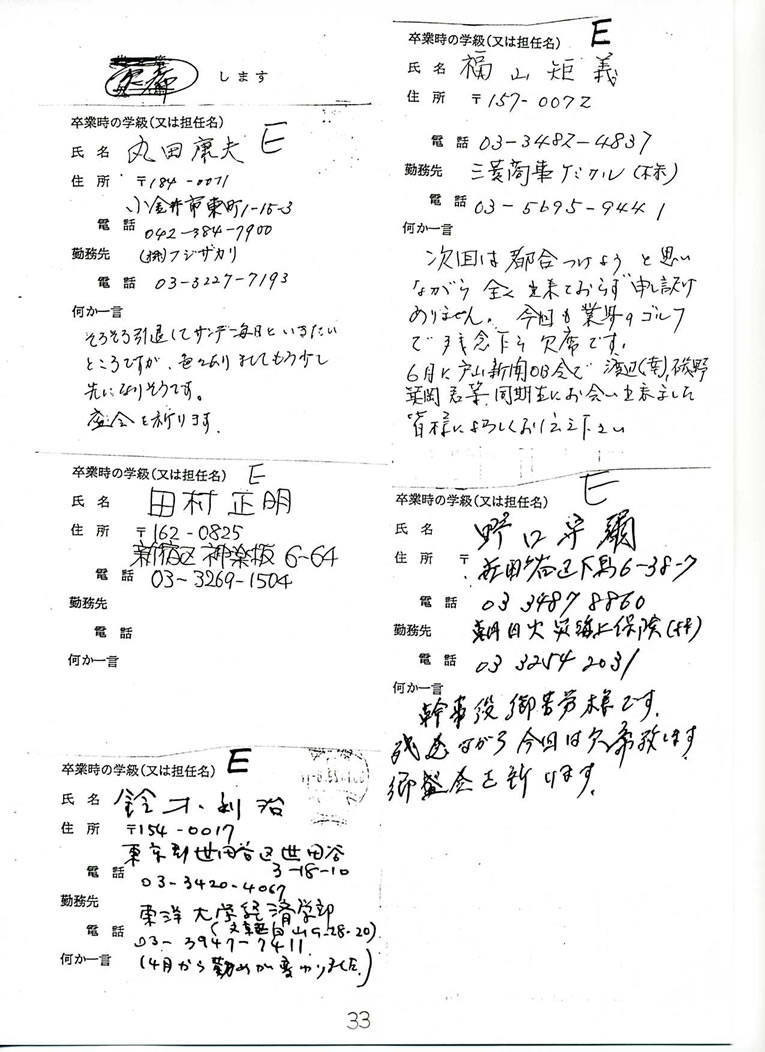 します
卒業時の学級(又は担任名) E
氏名 丸田康夫
住所 〒184-0011
小金井市東町1-15-3
電話 042-384-7900
勤務先 (株)フジザカリ
電話 03-3227-7193
何か一言
そろそろ引退してサンデー毎日といきたい
ところですが、色々ありましてもう少し
先になりそうです。
盛会を祈ります.
卒業時の学級(又は担任名) E
氏名 田村正明
住所 〒162-0825
新宿区神楽坂6-64
電話 03-3269-1504
勤務先
電話
何か一言
卒業時の学級(又は担任名) E
氏名 鈴木利治
住所 〒154-0017
東京都世田谷区世田谷
3-18-10
電話 03-3420-4067
勤務先 東洋大学経済学部
(文京区白山5-28-20)
電話 03-3947-7411
何か一言 (4月から勤めが変わりました.)
卒業時の学級(又は担任名) E
氏名 福山矩義
住所 〒157-0072
電話 03-3482-4837
勤務先 三菱商事ケミカル(株)
電話 03-5695-9441
何か一言
次回は都合つけようと思い
ながら全く出来ておらず申し訳け
ありません。今回も業界のゴルフ
で残念乍ら欠席です.
6月に戸山新聞OB会で渡辺(南),磯野
英岡君等、同期生にお会い出来ました
皆様によろしくお伝え下さい
卒業時の学級(又は担任名) E
氏名 野口宇彌
住所 〒
世田谷区下馬6-38-7
電話 03 3487 8860
勤務先 朝日火災海上保険(株)
電話 03 3254 2031
何か一言
幹事役御苦労様です.
残念ながら今回は欠席致します
御盛会を祈ります.
33